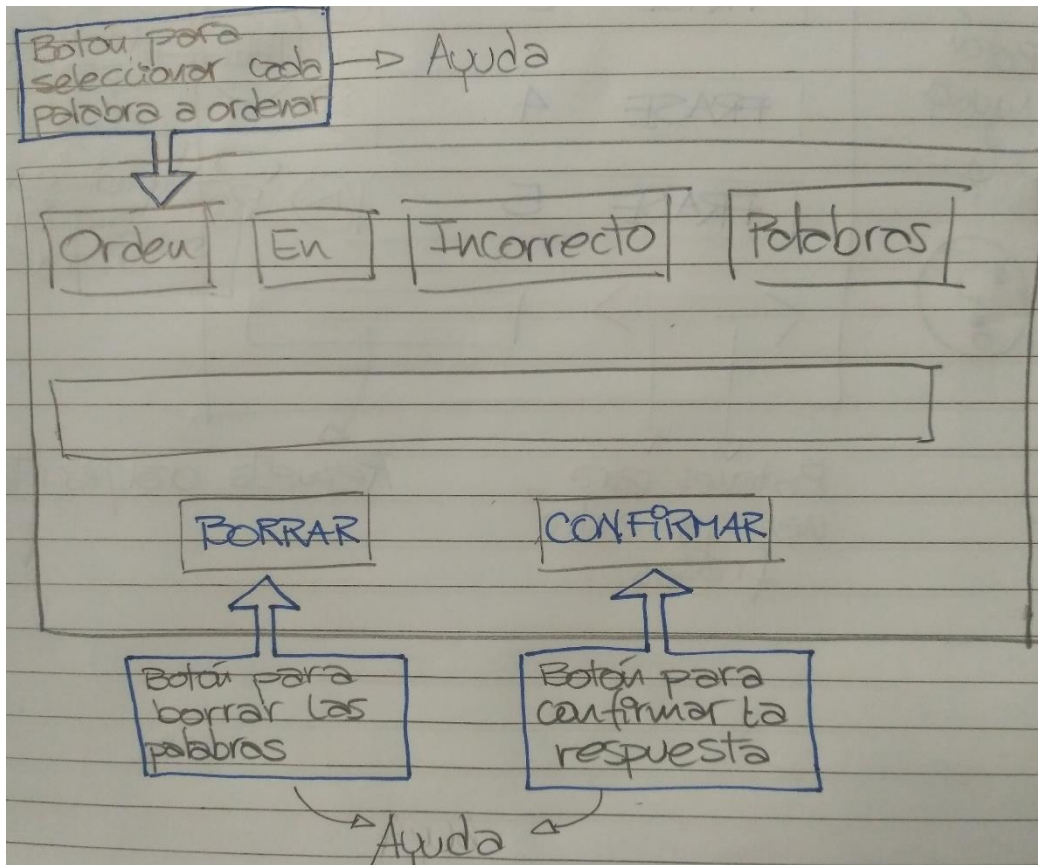 Botón para
seleccionar cada
palabra a ordenar
Ayuda
Orden En Incorrecto Palabras
BORRAR CONFIRMAR
Botón para
borrar las
palabras
Botón para
confirmar la
respuesta
Ayuda